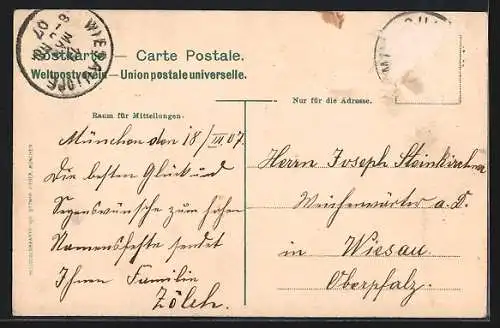 Postkarte — Carte Postale.
Weltpostverein — Union postale universelle.
WIESAU
07
Raum für Mitteilungen.
Nur für die Adresse.
München den 18/III 07.
Die besten Glück und
Segenswünsche zum hohen
Namensfeste sendet
Ihnen Familie
Zölch.
Herrn Joseph Steinkirchner
Weichenwärter a. D.
in Wiesau
Oberpfalz.
OTTMAR ZIEHER, MÜNCHEN